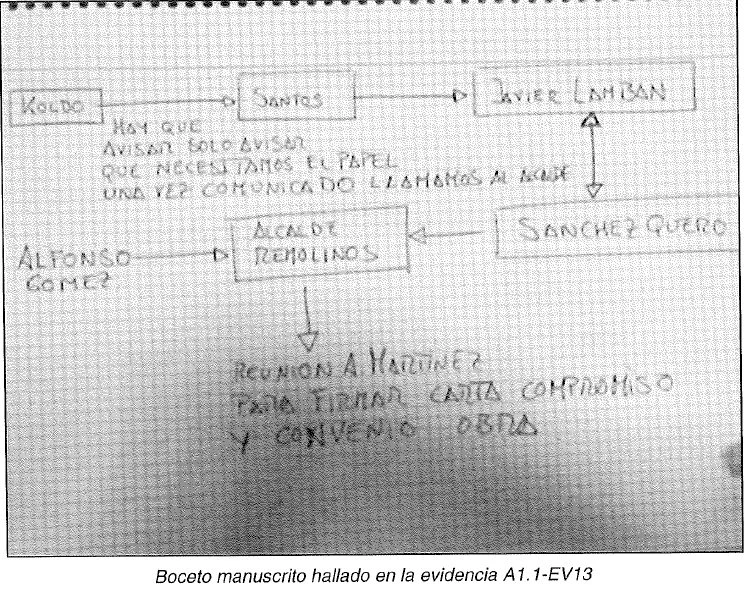 KOLDO
SANTOS
JAVIER LAMBAN
HAY QUE
AVISAR SOLO AVISAR
QUE NECESITAMOS EL PAPEL
UNA VEZ COMUNICADO LLAMAMOS AL ALCALDE
SANCHEZ QUERO
ALCALDE
REMOLINOS
ALFONSO
GOMEZ
REUNION A. MARTINEZ
PARA FIRMAR CARTA COMPROMISO
Y CONVENIO OBRA
Boceto manuscrito hallado en la evidencia A1.1-EV13